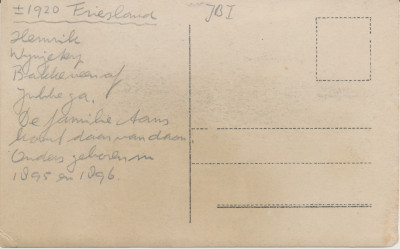 ± 1920 Friesland
JBI
Hendrik
Wijnjeterp
Bakkeveen of
Jubbega.
De familie Aans
komt daar vandaan.
Ouders geboren in
1895 en 1896.